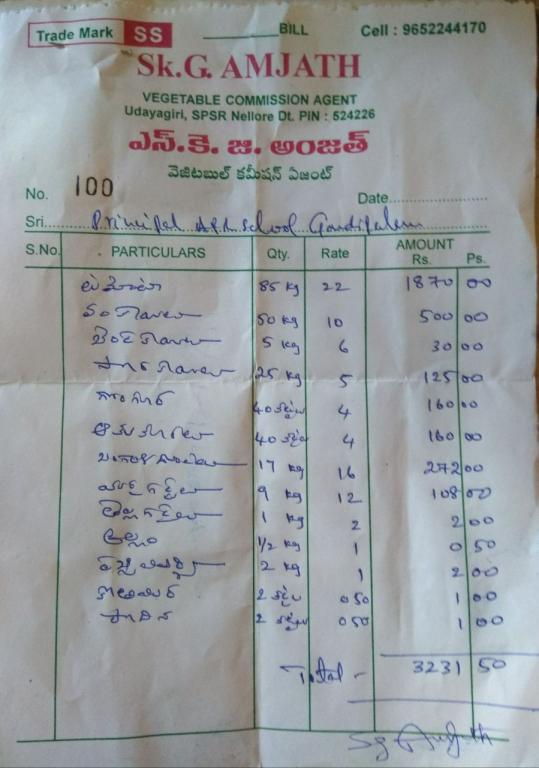 Trade Mark SS BILL Cell : 9652244170
Sk.G. AMJATH
VEGETABLE COMMISSION AGENT
Udayagiri, SPSR Nellore Dt. PIN : 524226
ఎస్.కె. జి. అంజత్
వెజిటబుల్ కమీషన్ ఏజంట్
No. 100 Date
Sri. Principal A.P.R. School Gandipalem
S.No. PARTICULARS Qty. Rate AMOUNT Rs. Ps.
టమోటా 85 kg 22 1870 00
వంకాయలు 50 kg 10 500 00
బెండకాయలు 5 kg 6 30 00
సొరకాయలు 25 kg 5 125 00
గోంగూర 40 కట్టలు 4 160 00
ఆకుకూరలు 40 కట్టలు 4 160 00
17 kg 16 272 00
9 kg 12 108 00
1 kg 2 2 00
అల్లం 1/2 kg 1 0 50
2 kg 1 2 00
2 కట్టలు 0 50 1 00
పొదిన 2 కట్టలు 0 50 1 00
Total - 3231 50